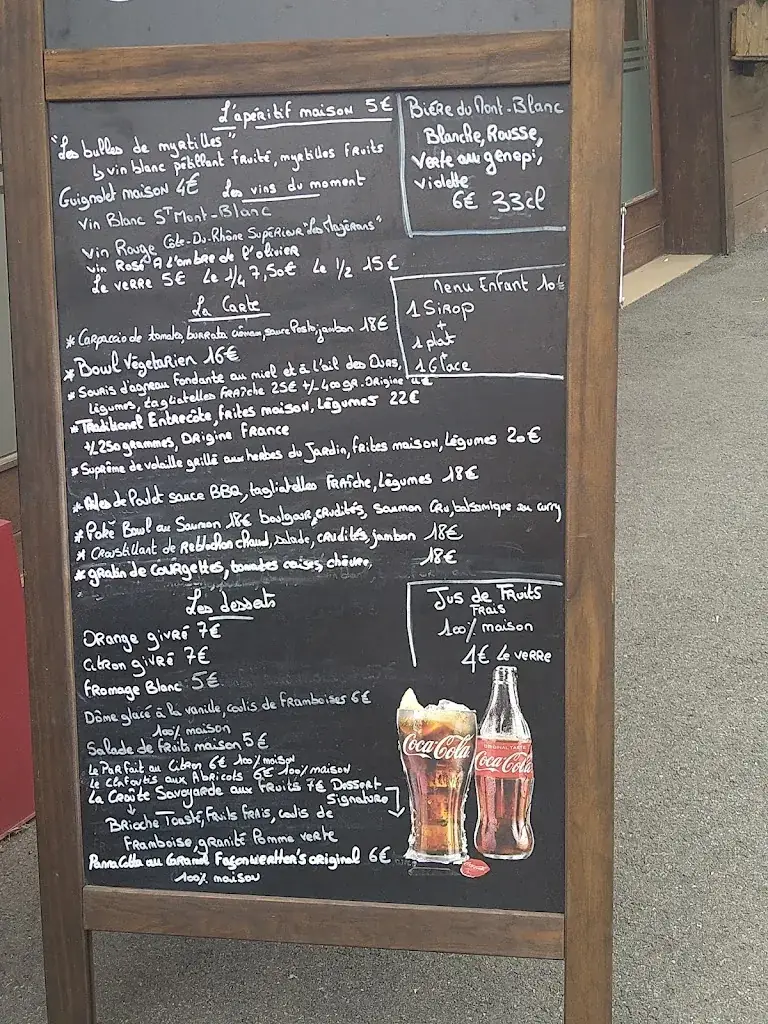 L'apéritif maison 5€
"Les bulles de myrtilles"
↳ vin blanc pétillant fruité, myrtilles fruits
Guignolet maison 4€
Les vins du moment
Vin Blanc St Mont-Blanc
Vin Rouge Côte-Du-Rhône Supérieur "Les
Vin Rosé A l'ombre de l'olivier
Le verre 5€ Le 1/4 7,50€ Le 1/2 15€
Bière du Mont-Blanc
Blanche, Rousse,
Verte au génépi,
Violette
6€ 33cl
Menu Enfant 10€
1 Sirop
+
1 plat
+
1 Glace
La Carte
* Carpaccio de tomates, burrata crémeux, sauce Pesto, jambon 18€
* Bowl Végétarien 16€
* Souris d'agneau fondante au miel et à l'ail des Ours,
Légumes, tagliatelles Fraîche 25€ +/- 400gr. Origine
* Traditionel Entrecôte, frites maison, Légumes 22€
+/- 250 grammes, Origine France
* Suprême de volaille grillé aux herbes du Jardin, frites maison, Légumes 20€
* Ailes de Poulet sauce BBQ, tagliatelles Fraîche, Légumes 18€
* Poké Bowl au Saumon 18€ boulgour, crudités, saumon Cru, balsamique au curry
* Croustillant de Reblochon chaud, salade, crudités, jambon 18€
* gratin de courgettes, tomates cerises, chèvre, 18€
Les desserts
Orange givré 7€
Citron givré 7€
Fromage Blanc 5€
Dôme glacé à la vanille, coulis de framboises 6€
100% maison
Salade de fruits maison 5€
Le Parfait au Citron 6€ 100% maison
Le Clafoutis aux Abricots 6€ 100% maison
La Croûte Savoyarde aux fruits 7€ Dessert
Signature
Brioche Toasté, Fruits frais, coulis de
Framboise, granité Pomme verte
Panna Cotta au Caramel Façon Werther's original 6€
100% maison
Jus de Fruits
Frais
100% maison
4€ Le verre
Coca-Cola
ORIGINAL TASTE
Coca-Cola